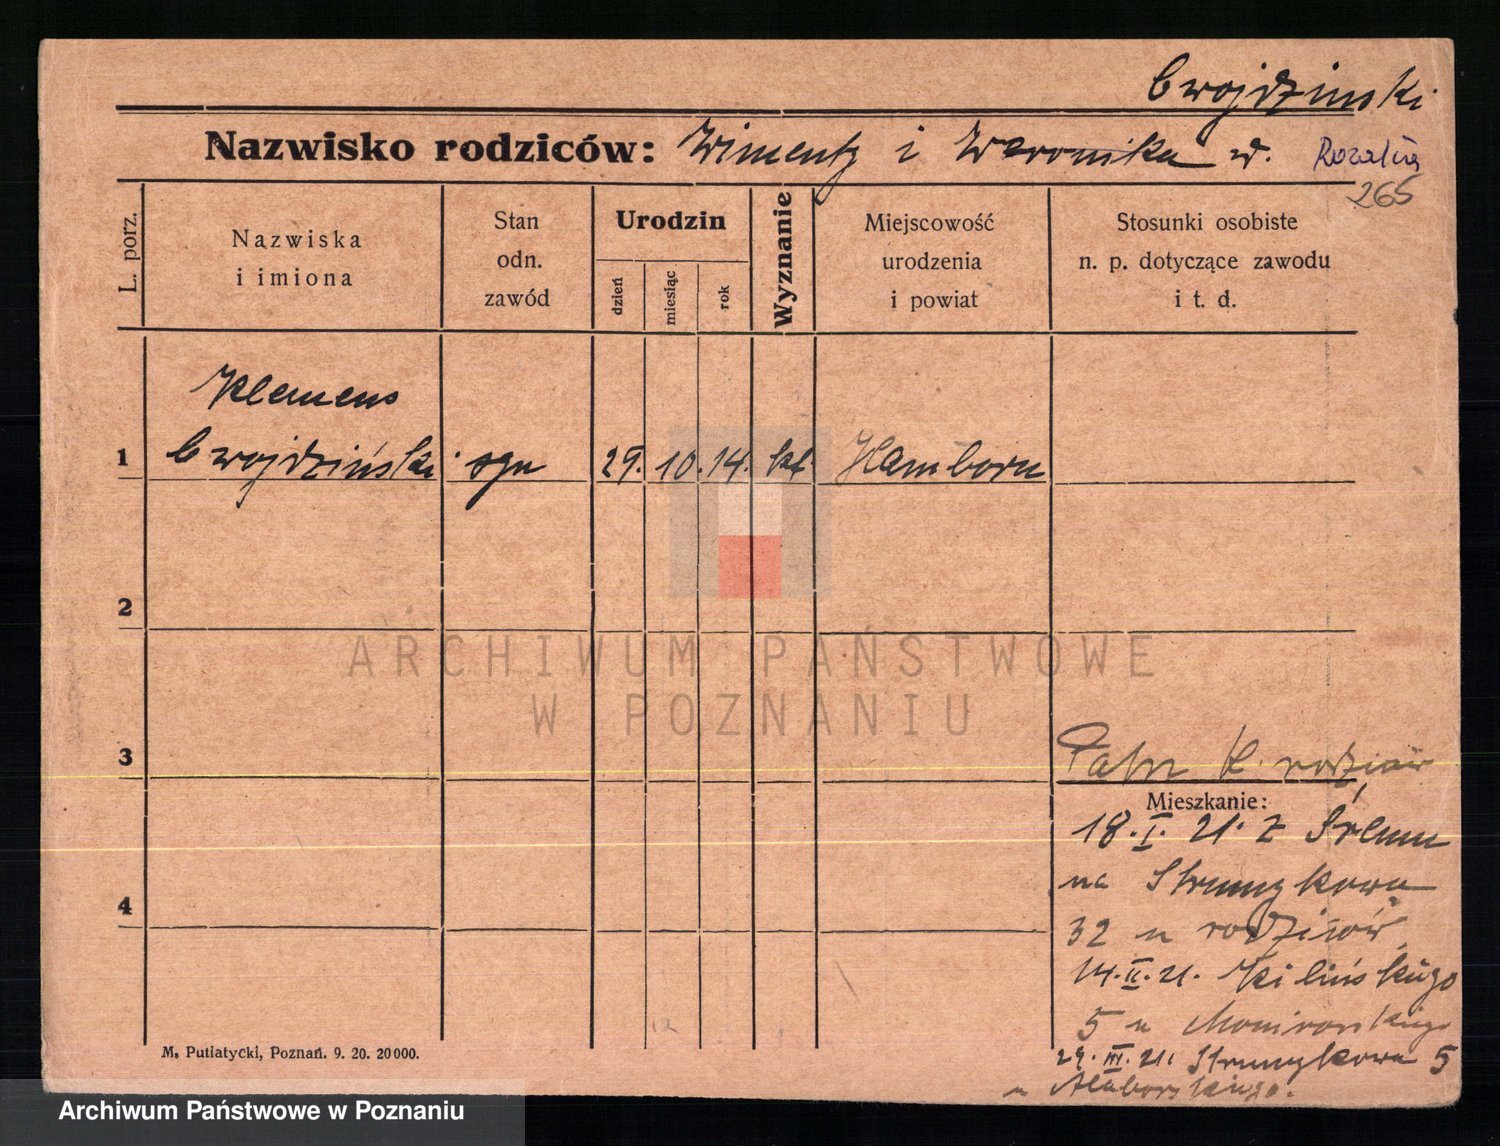 Cwojdzinski
Nazwisko rodziców: Wincenty i Weronika w. Rozalia
265
L. porz.
Nazwiska
i imiona
Stan
odn.
zawód
Urodzin
dzień
miesiąc
rok
Wyznanie
Miejscowość
urodzenia
i powiat
Stosunki osobiste
n. p. dotyczące zawodu
i t. d.
Klemens
1 Cwojdziński syn 29. 10. 14. kt. Hamborn
2
ARCHIWUM PAŃSTWOWE
W POZNANIU
3
Patrz K. rodziców
Mieszkanie:
18. I. 21. z Śremu
na Strumykowa
4
32 u rodziców
14. II. 21. Kilińskiego
5 u
29. III. 21. Strumykowa 5
u
M. Putiatycki, Poznań. 9. 20. 20000.
Archiwum Państwowe w Poznaniu